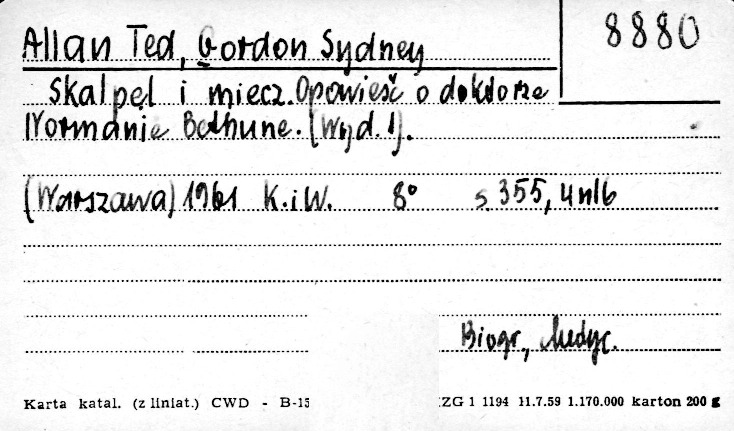 8880
Allan Ted, Gordon Sydney
Skalpel i miecz. Opowieść o doktorze
Normanie Bethune. (Wyd. 1).
(Warszawa) 1961 K.iW. 8° s. 355, 4 nlb
Biogr., Medyc.
Karta katal. (z liniat.) CWD - B-15 ZG 1 1194 11.7.59 1.170.000 karton 200 g